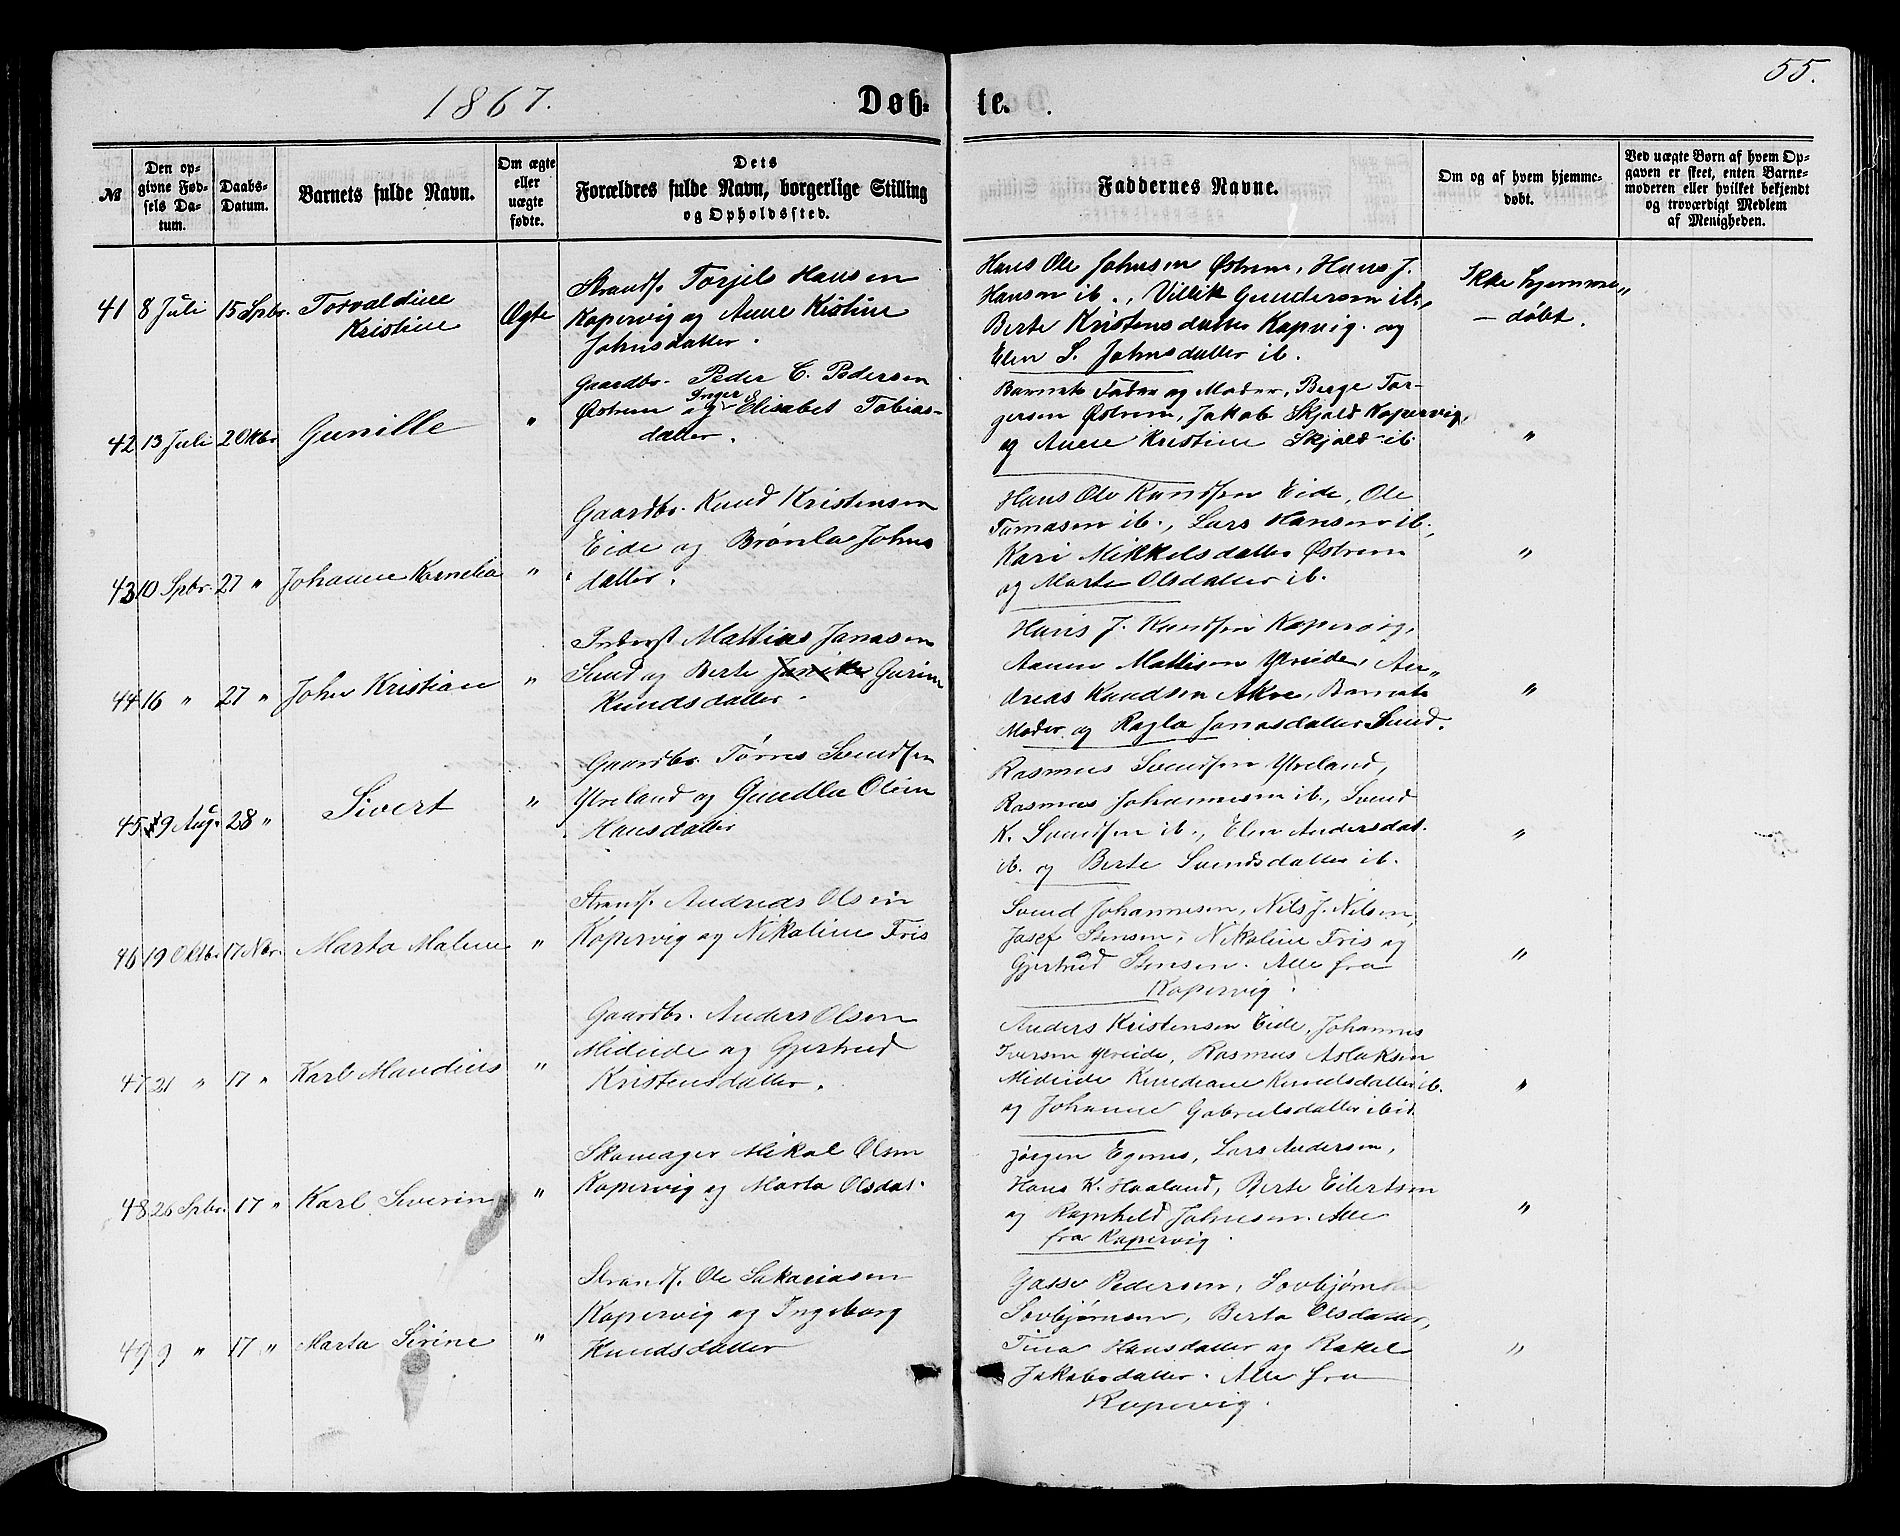 1867.
Døb-
te.
55.
№
Den op-
givne Fød-
sels Da-
tum.
Daabs-
Datum.
Barnets fulde Navn.
Om ægte
eller
uægte
fødte.
Dets
Forældres fulde Navn, borgerlige Stilling
og Opholdssted.
Faddernes Navne.
Om og af hvem hjemme-
døbt.
Ved uægte Børn af hvem Op-
gaven er skeet, enten Barne-
moderen eller hvilket bekjendt
og troværdigt Medlem
af Menigheden.
41 8 Juli 15 Spbr. Torvaldine
Kristine
Ægte
Strands. Torjils Hansen
Kopervig og Anne Kistine
Johnsdatter.
Hans Ole Johnsen Østrem, Hans J.
Hansen ib., Villik Gundersen ib.,
Berte Kristensdatter Kopvig. og
Elen S. Johnsdatter ib.
Ikke hjemme„
— døbt.
42 13 Juli 2 Okbr Gunille "
Gaardbr. Peder C. Pedersen
Østrem og Inger Elisabet Tobias-
datter.
Barnets Fader og Moder, Berge Tor-
gersen Østrem, Jakob Skjold Kopervig,
og Anne Kristine Skjold ib. "
43 10 Spbr. 27 " Johanne Kornelia "
Gaardbr. Knud Kristensen
Eide og Brønla Johns
datter.
Hans Ole Knudsen Eide, Ole
Tomasen ib., Lars Hansen ib.,
Kari Mikkelsdatter Østrem
og Marte Olsdatter ib. "
44 16 " 27 " John Kristian "
Inderst Mattias Janasen
Sund og Berte Gurine
Knudsdatter.
Hans J. Knudsen Kopervig,
Mattisen Ytreide, An„
dreas Knudsen Akre, Barnets
Moder og Ragla Jonasdatter Sund. "
45 9 Aug. 28 " Sivert "
Gaardbr. Tørres Svendsen
Ytreland og Gundla Oline
Hansdatter
Rasmus Svendsen Ytreland,
Rasmus Johannesen ib., Svend
K. Svendsen ib., Elen Andersdat.
ib. og Berte Svendsdatter ib. "
46 19 Oktb. 17 Nbr. Marta Maline "
Strands. Andreas Olsen
Kopervig og Nikoline Fris
Svend Johannesen, Nils J. Nilsen,
Josef Stensen, Nikoline Fris og
Gjertrud Stensen. Alle fra
Kopervig. "
47 21 " 17 " Karl Mandius "
Gaardbr. Anders Olsen
Mideide og Gjertrud
Kristensdatter.
Anders Kristensen Eide, Johannes
Iversen Ytreide, Rasmus Aslaksen
Mideide Knudsdatter ib.
og Johanne Gabrielsdatter ibid. "
48 26 Spbr. 17 " Karl Severin "
Skomager Mikal Olsen
Kopervig og Marta Olsdat.
Jørgen Egenes, Lars Andersen,
Hans K. Haaland, Berte Eilertsen
og Ragnhild Johnsen. Alle
fra Kopervig. "
49 9 " 17 " Marta Sirine "
Strands. Ole Sakariasen
Kopervig og Ingeborg
Knudsdatter
Gasse Pedersen, Sovbjørn
Sovbjørnsen, Berta Olsdatter,
Tina Hansdatter og Rakel
Jakobsdatter. Alle fra
Kopervig. "